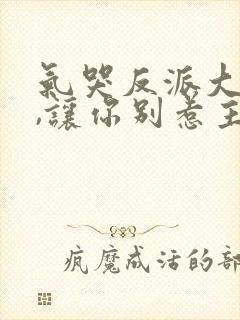 氣哭反派大
,讓你別惹主
疯魔成活的部